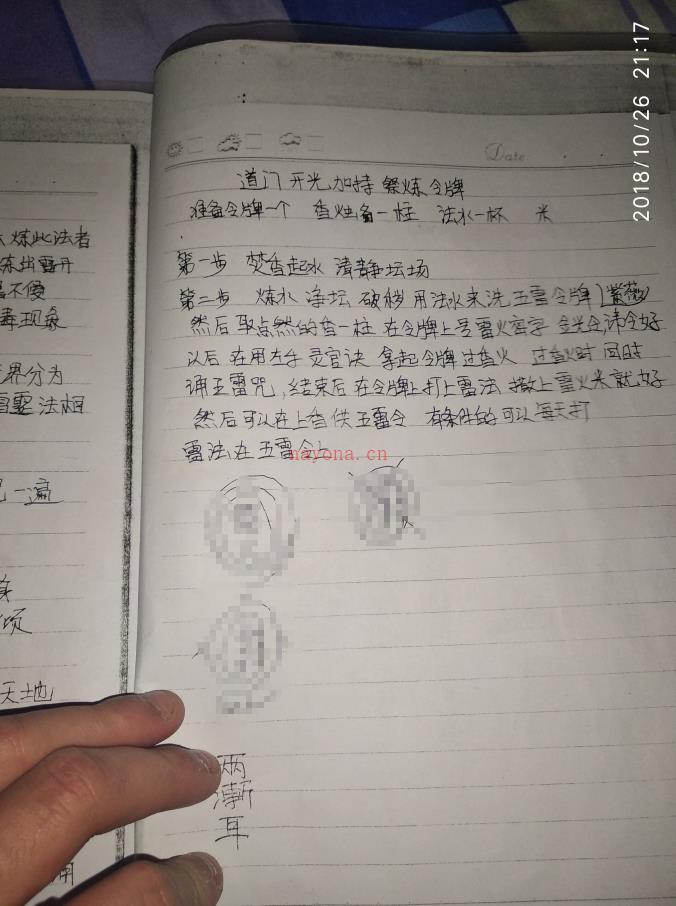 2018/10/26 21:17
Date
炼此法者
不使
现象
界分为
法相
一遍
天地
道门开光加持祭炼令牌
准备令牌一个 香烛备一柱 法水一杯 米
第一步 焚香起水 清静坛场
第二步 炼水 净坛 破秽 用法水来洗五雷令牌(紫薇)
然后取点然的香一柱 在令牌上
以后 在用左手 灵官诀 拿起令牌过香火 过香火时 同时
诵五雷咒,结束后在令牌上打上雷法 撒上雷火米就好
然后可以在上香供五雷令 有条件的可以每天打
雷法在五雷令上
nayona.cn
两
渐
耳